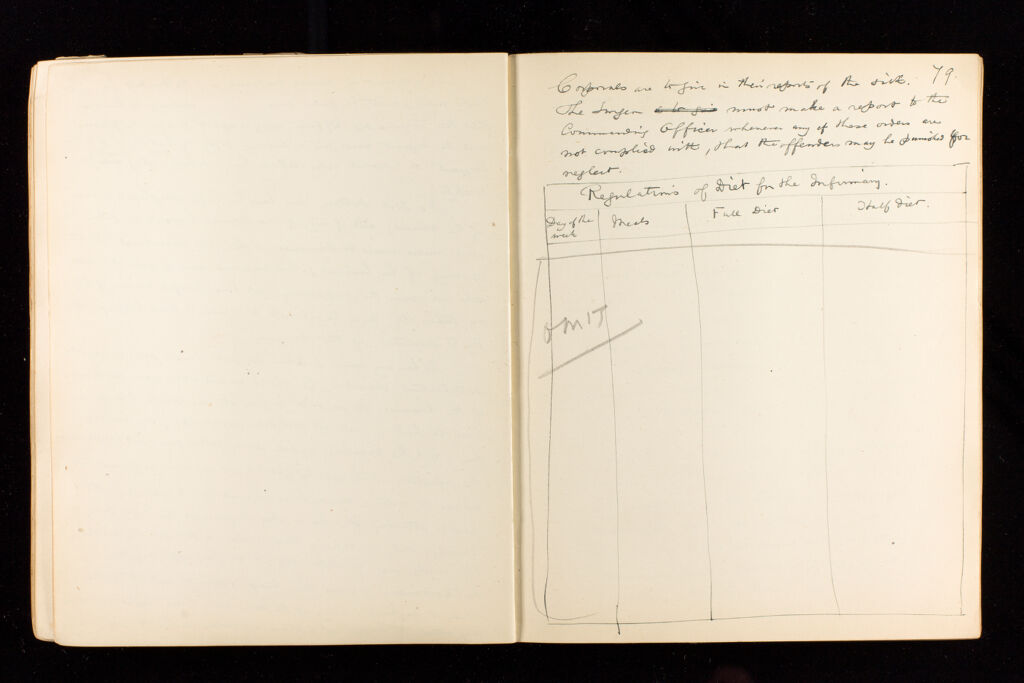 79.
Corporals are to give in their reports of the sick.
The Surgeon is to give must make a report to the
Commanding Officer whenever any of these orders are
not complied with, that the offenders may be punished for
neglect.
Regulations of Diet for the Infirmary.
Day of the week Meals Full Diet Half Diet.
OMIT